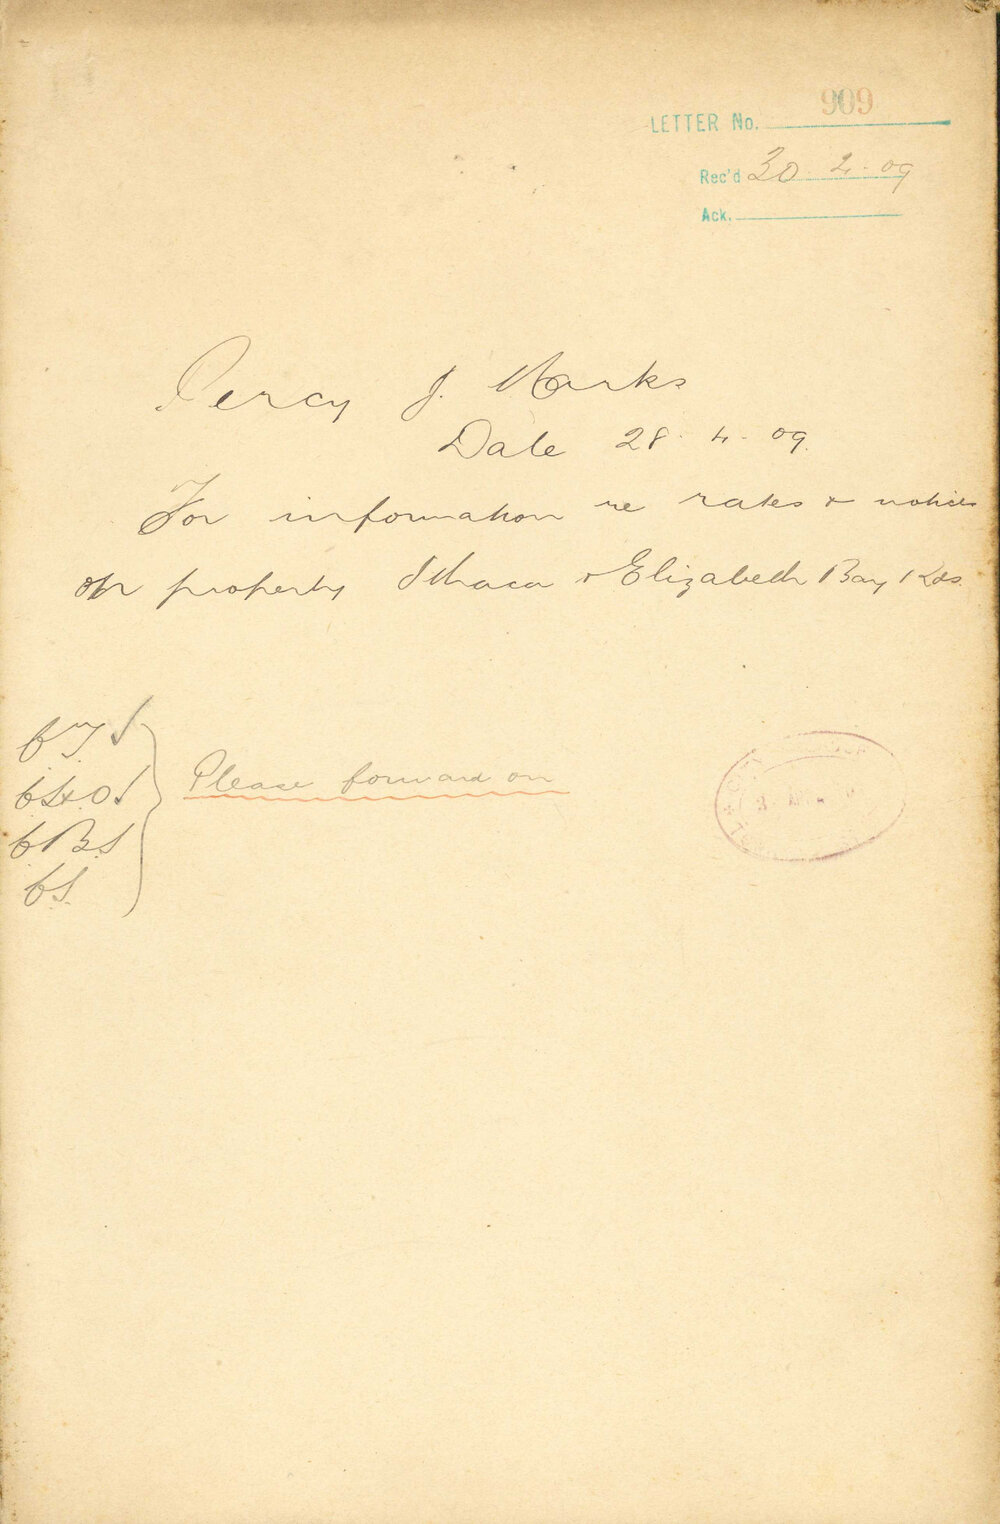 LETTER No. 909
Rec'd 30-4-09
Ack.
Percy J. Marks
Date 28. 4. 09.
For information re rates & notices
on property Ithaca & Elizabeth Bay Rds.
C.T.
C.H.O.
C.B.S
C.S.
Please forward on